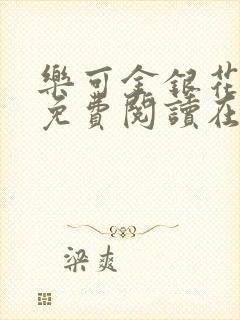 樂可金銀花
免費閱讀在
梁爽